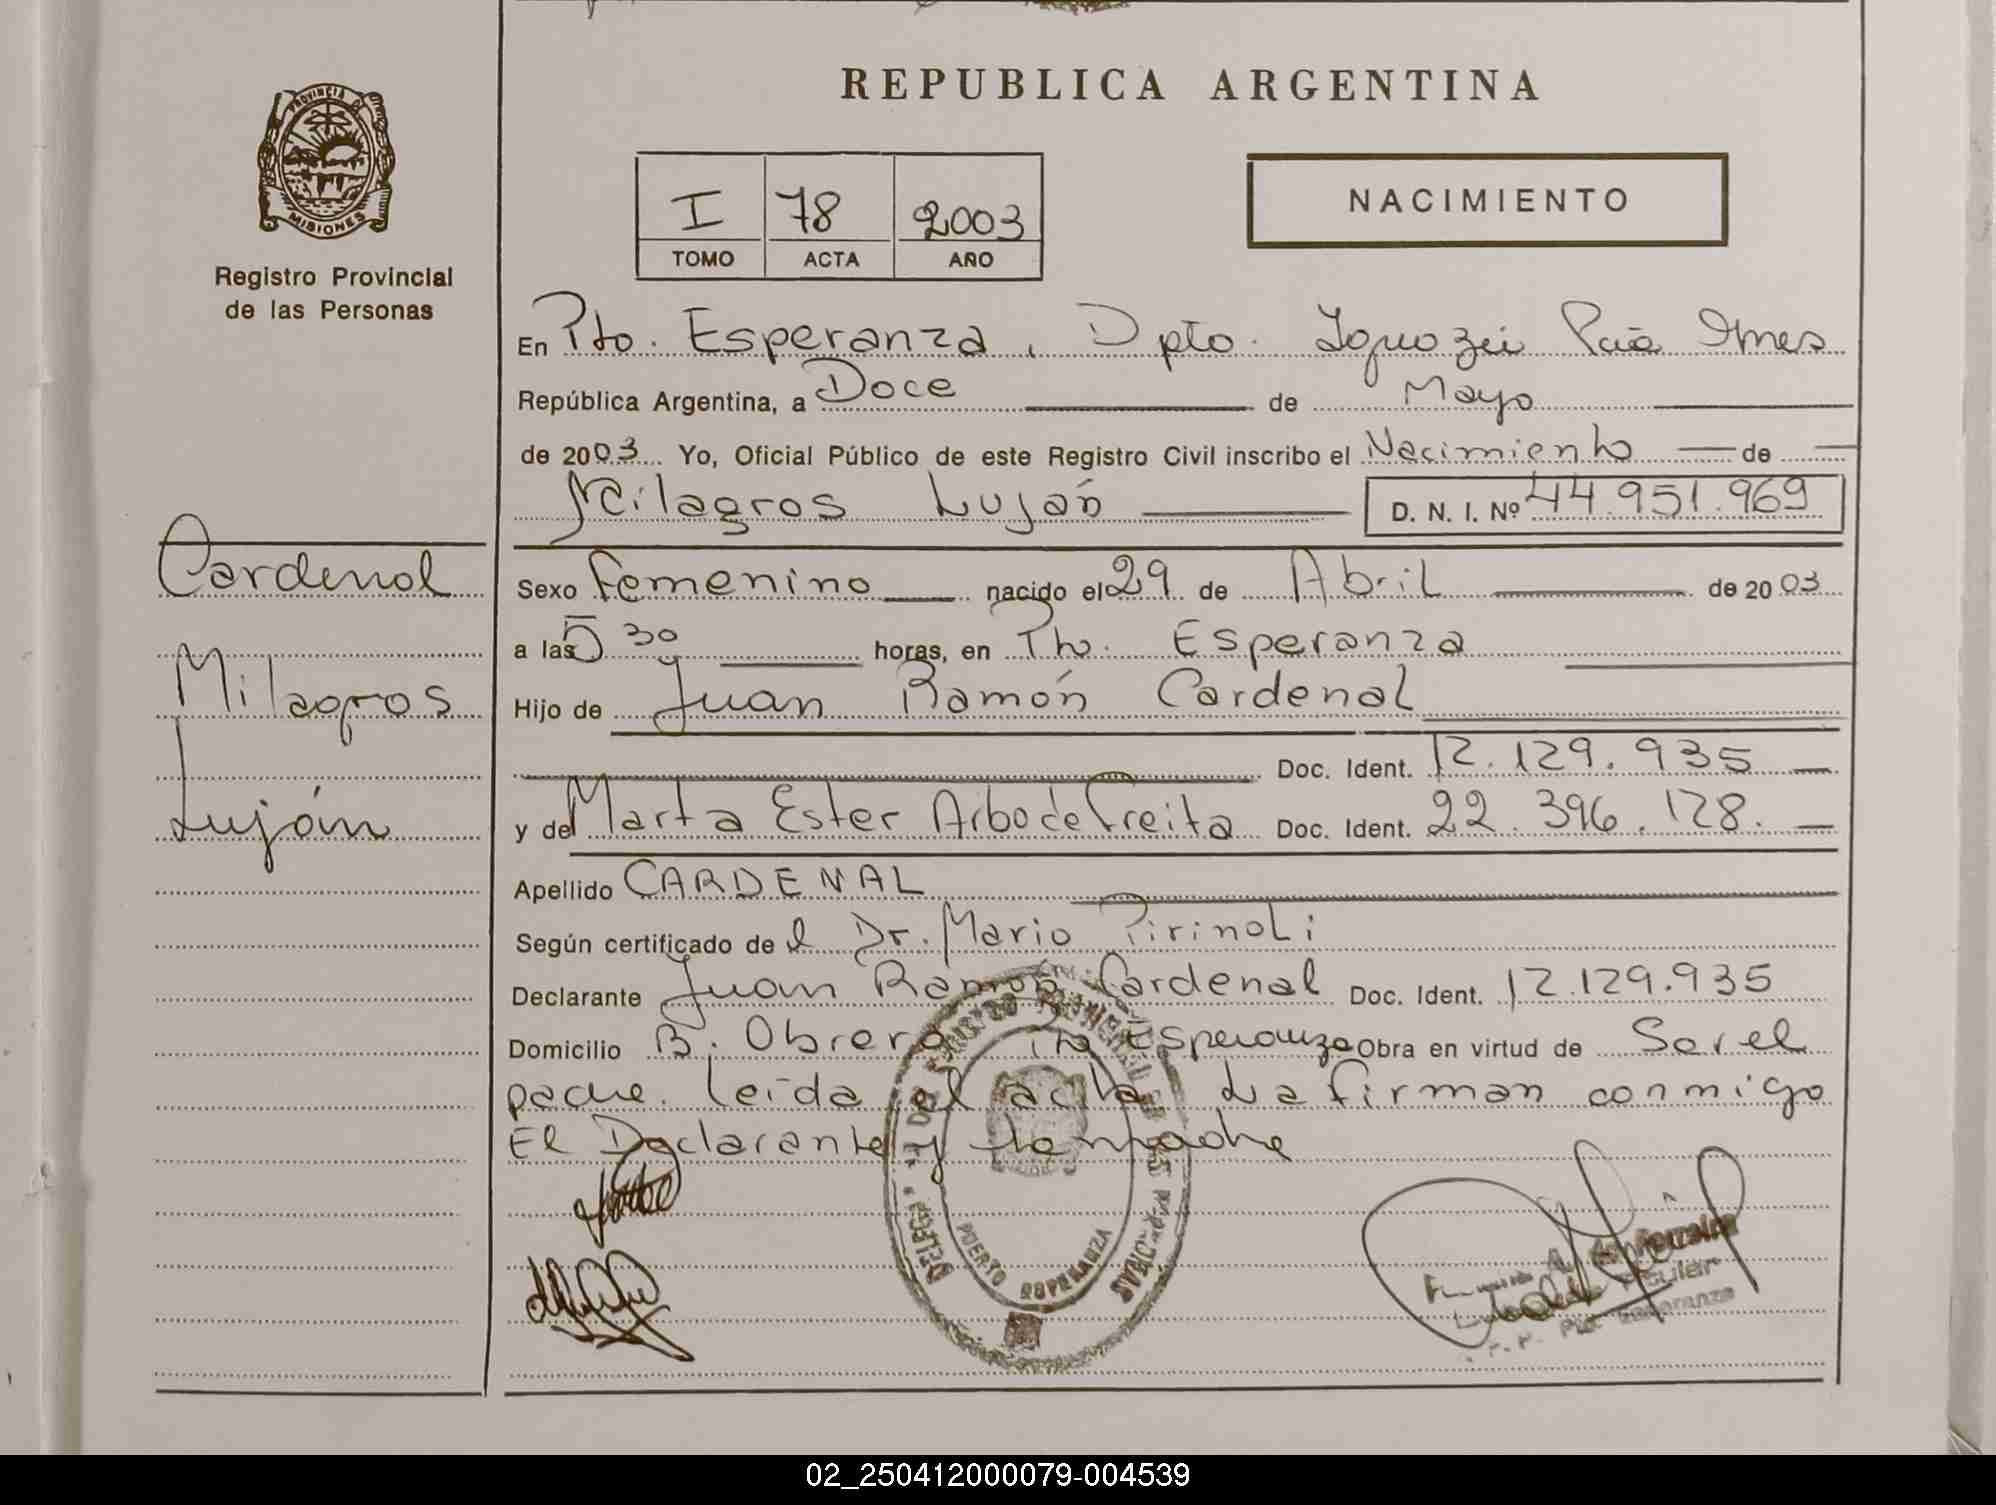 REPUBLICA ARGENTINA
PROVINCIA DE
MISIONES
Registro Provincial
de las Personas
I 78 2003
TOMO ACTA AÑO
NACIMIENTO
En Pto. Esperanza, Dpto. Iguazú Pcia Mnes
República Argentina, a Doce de Mayo
de 2003 Yo, Oficial Público de este Registro Civil inscribo el Nacimiento de
Milagros Luján D. N. I. Nº 44.951.969
Cardenal
Milagros
Luján
Sexo Femenino nacido el 29 de Abril de 2003
a las 5 30 horas, en Pto. Esperanza
Hijo de Juan Ramón Cardenal
Doc. Ident. 12.129.935
y de Marta Ester Arbo de Freita Doc. Ident. 22.396.128.
Apellido CARDENAL
Según certificado de el Dr. Mario Pirinoli
Declarante Juan Ramón Cardenal Doc. Ident. 12.129.935
Domicilio B. Obrero Pto Esperanza Obra en virtud de Ser el
padre. Leída el acta La firman conmigo
El Declarante y la madre
PUERTO ESPERANZA
Pto Esperanza
02_250412000079-004539